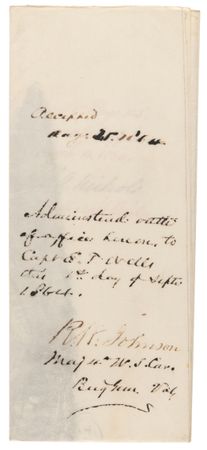 Accepted
Aug. 25. 1864
Administered oath
of office hereon, to
Capt E. T. Wells
this 1st day of Septr
1864.
R. W. Johnson
Maj 4th U. S. Cav.
Brig Genl Vols